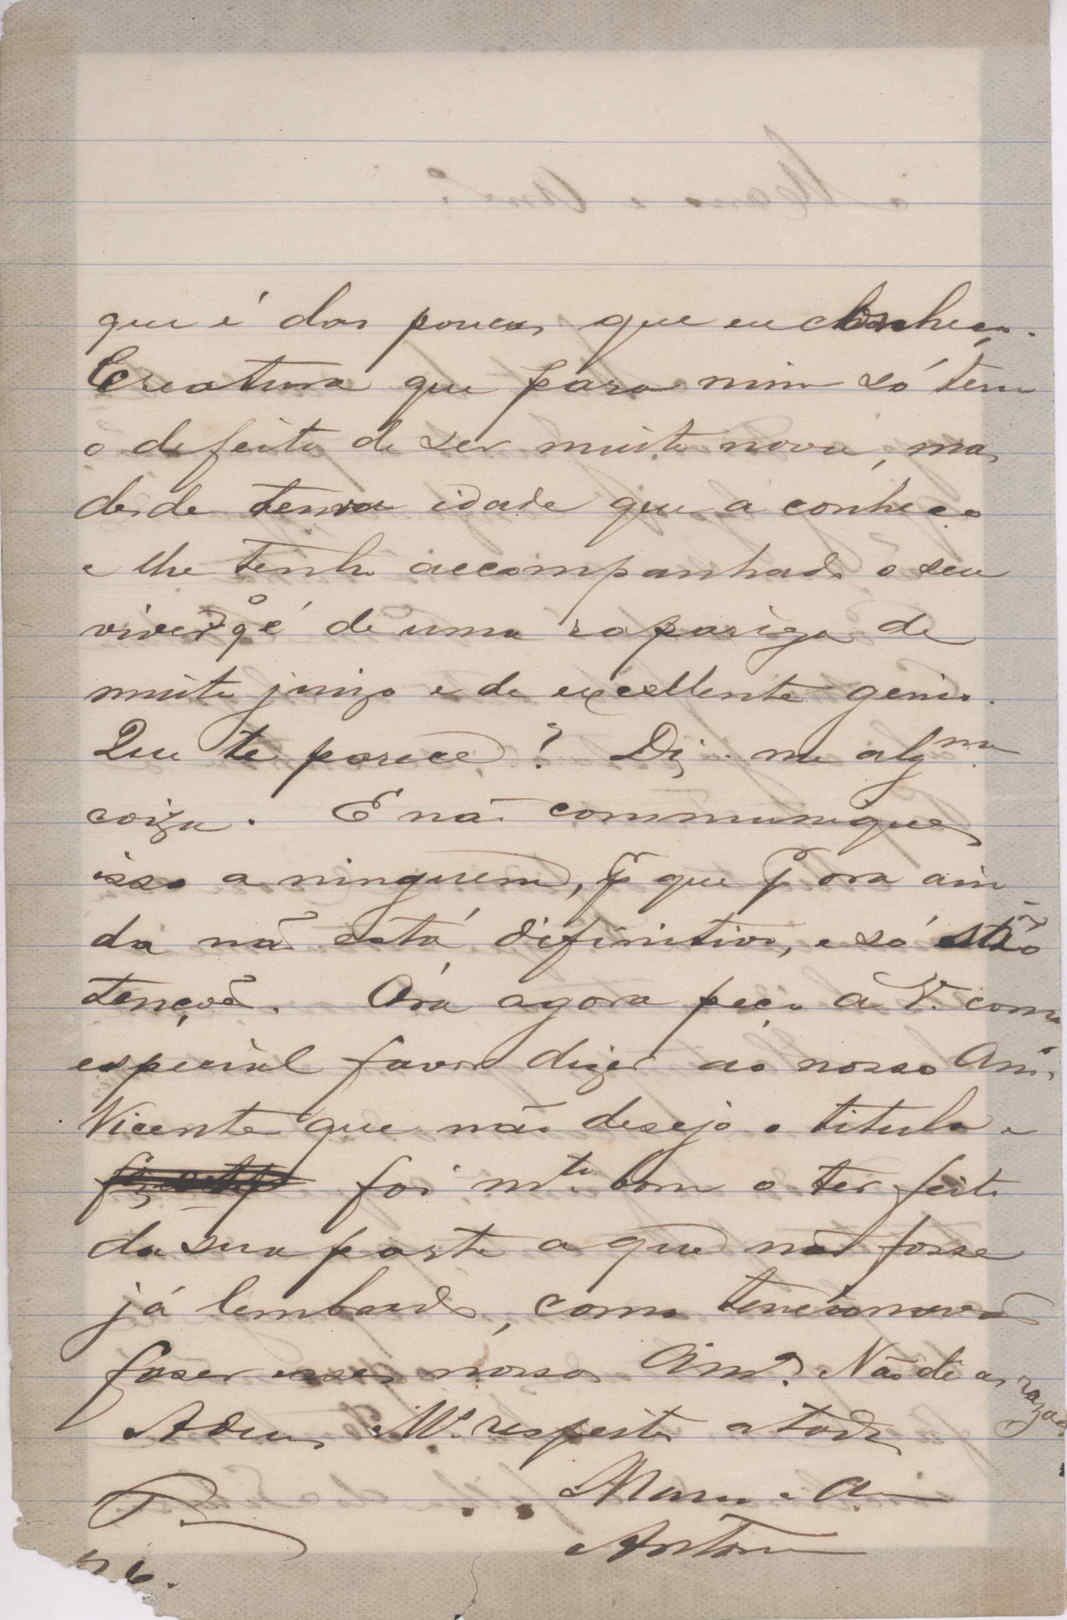 que é das poucas que eu conheço.
Creatura que para mim só tem
o defeito de ser muito nova, mas
desde tenra idade que a conheço
e lhe tenho accompanhado o seu
viver q é de uma rapariga de
muito juizo e de excellente genio.
Que te parece? Diz-me alg.ma
coiza. E não communiques
isso a ninguem, p que p ora ain
da não está difinitivo, e só são
tenções. Ora agora peço a V. como
especial favor dizer ao nosso Am.o
Vicente que não desejo o titulo e
foi m.to bom o ter feito
da sua parte a que não fosse
já lembrado, como tencionavão
faser esses nossos Am.os. Não dê as razões
Adeus. M.s respeitos a todos
Mano e A
Antonio